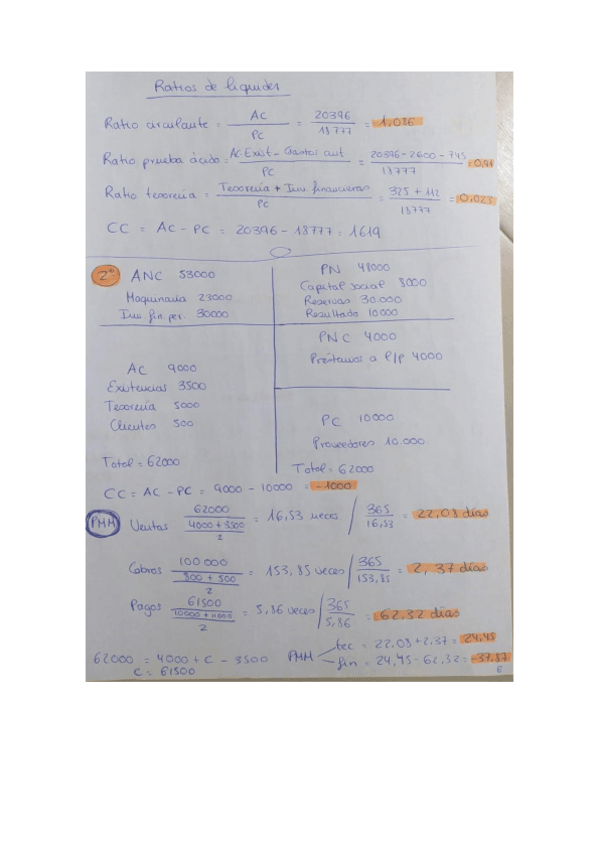 Ratios de liquidez
Ratio circulante = AC / PC = 20396 / 18777 = 1,086
Ratio prueba ácida = AC - Exist - Gastos ant / PC = 20396 - 2600 - 745 / 18777 =
Ratio tesorería = Tesorería + Inv. financieras / PC = 325 + 112 / 18777 = 0,023
CC = AC - PC = 20396 - 18777 = 1619
2º ANC 53000
Maquinaria 23000
Inv. fin. per. 30000
PN 48000
Capital social 8000
Reservas 30.000
Resultado 10000
PNC 4000
Préstamos a l/p 4000
AC 9000
Existencias 3500
Tesorería 5000
Clientes 500
Total = 62000
PC 10000
Proveedores 10.000
Total = 62000
CC = AC - PC = 9000 - 10000 = -1000
PMM Ventas 62000 / (4000 + 3500 / 2) = 16,53 veces / 365 / 16,53 = 22,08 días
Cobros 100 000 / (800 + 500 / 2) = 153,85 veces / 365 / 153,85 = 2,37 días
Pagos 61500 / (10000 + / 2) = 5,86 veces / 365 / 5,86 = 62,32 días
62000 = 4000 + C - 3500
C = 61500
PMM tec = 22,08 + 2,37 = 24,45
fin = 24,45 - 62,32 = -37,87
6